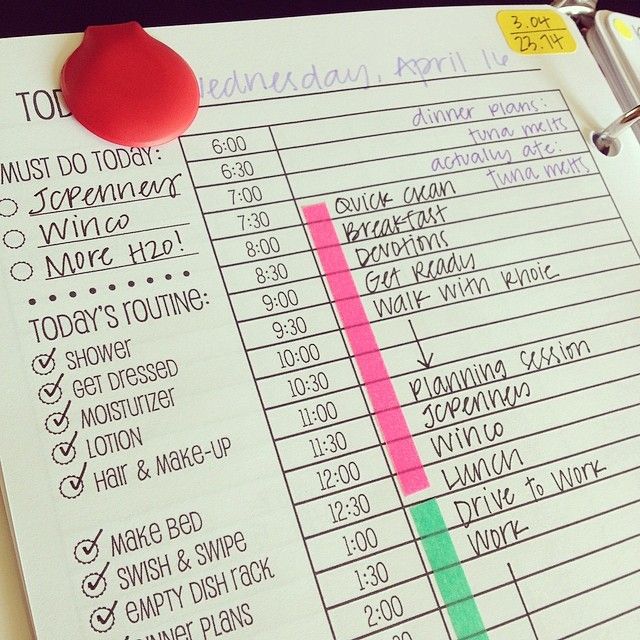 3.04
23.14
TOD
Wednesday, April 16
dinner plans:
tuna melts
actually ate:
tuna melts
MUST DO TODAY:
JCPenneys
Winco
More H2O!
TODAY'S ROUTINE:
SHOWER
GET DRESSED
MOISTURIZER
LOTION
HAIR & MAKE-UP
MAKE BED
SWISH & SWIPE
EMPTY DISH RACK
DINNER PLANS
6:00
6:30
7:00
7:30 Quick Clean
8:00 Breakfast
8:30 Devotions
9:00 Get Ready
9:30 Walk with Rhoie
10:00
10:30
11:00 Planning Session
11:30 JCPenneys
12:00 Winco
12:30 Lunch
1:00 Drive to Work
1:30 Work
2:00